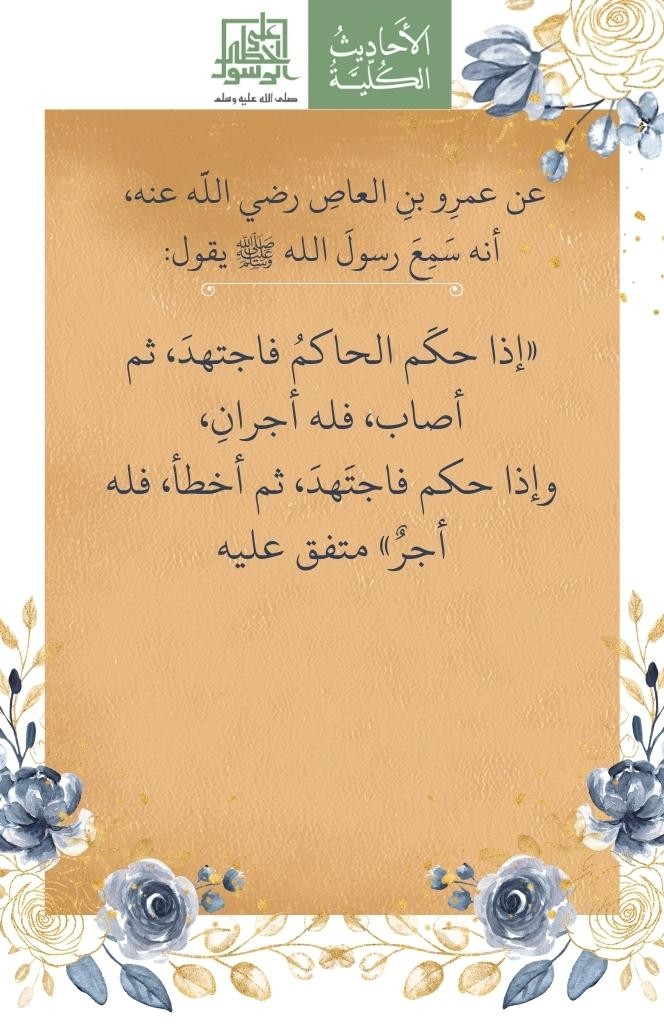 الأَحَادِيثُ
الكُلِّيَّةُ
على
خطى
الرسول
صلى الله عليه وسلم
عن عمرِو بنِ العاصِ رضي اللّه عنه،
أنه سَمِعَ رسولَ الله ﷺ يقول:
«إذا حكَم الحاكمُ فاجتهدَ، ثم
أصاب، فله أجرانِ،
وإذا حكم فاجتَهدَ، ثم أخطأ، فله
أجرٌ» متفق عليه